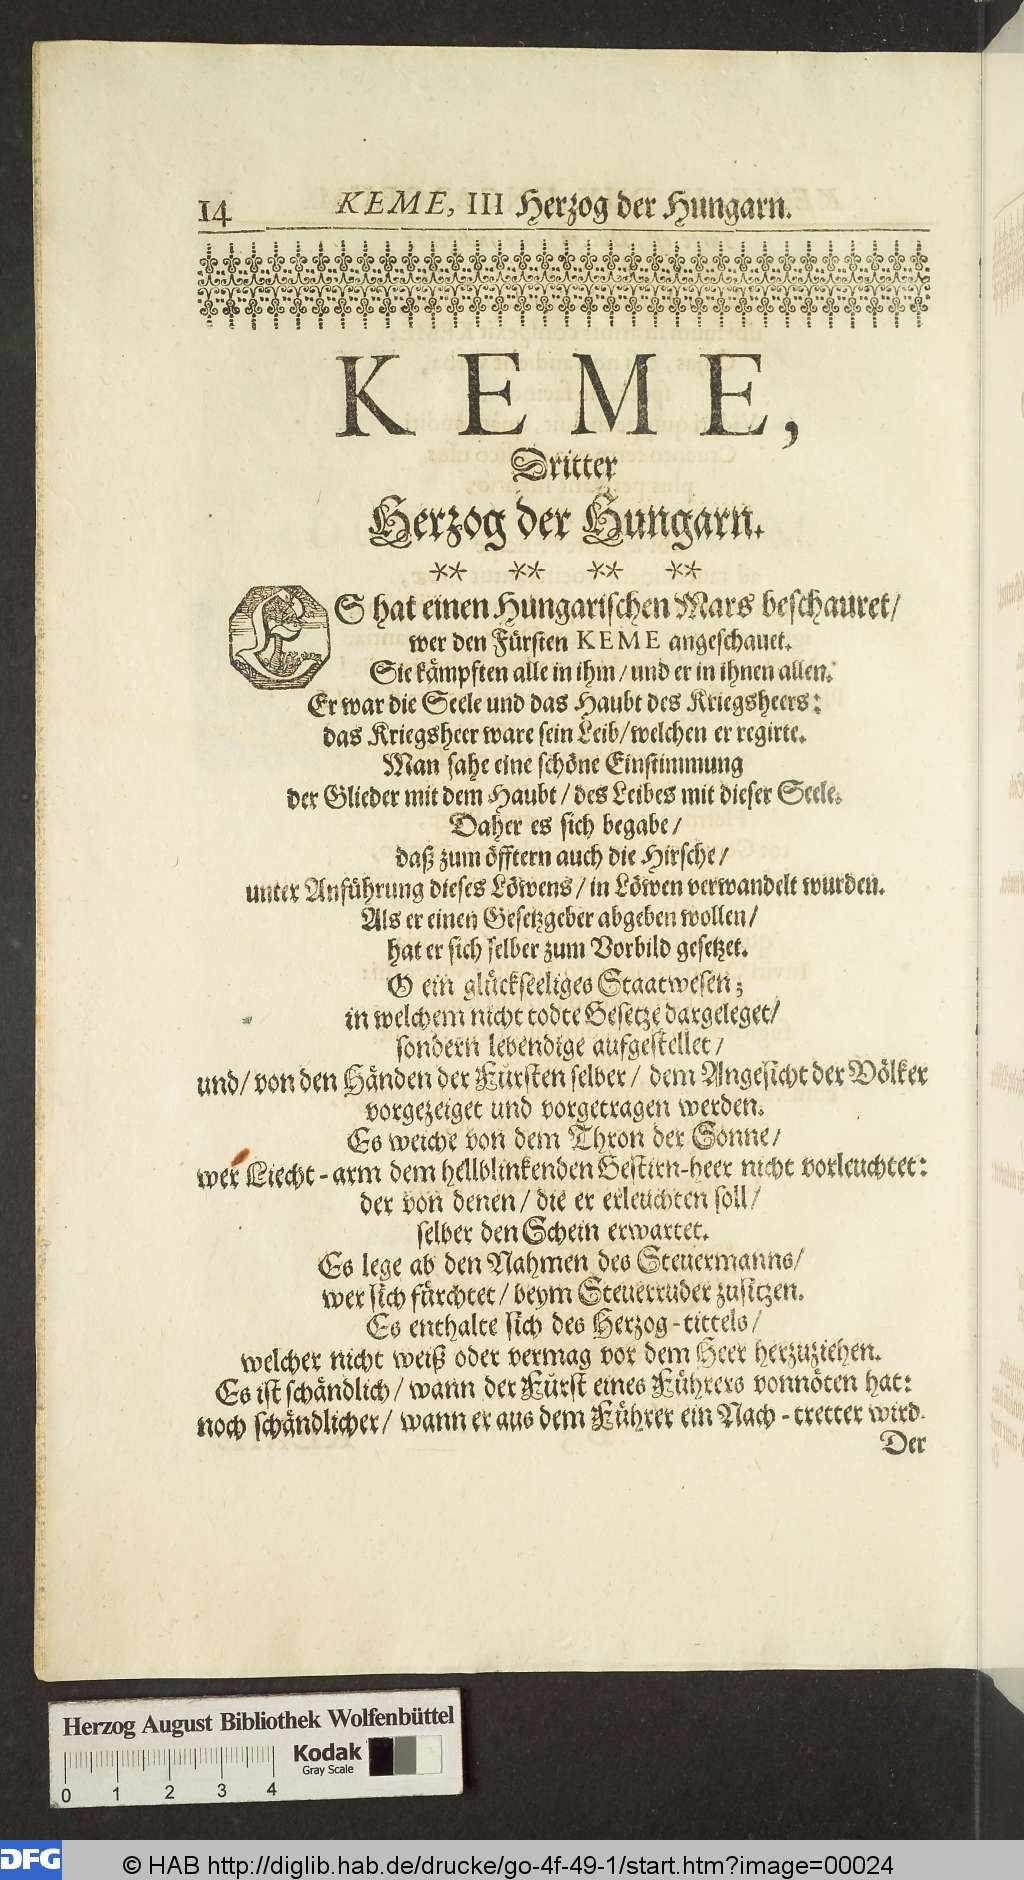 14 KEME, III Herzog der Hungarn.
KEME,
Dritter
Herzog der Hungarn.
** ** ** **
ES hat einen Hungarischen Mars beschauret/
wer den Fürsten KEME angeschauet.
Sie kämpften alle in ihm/ und er in ihnen allen.
Er war die Seele und das Haubt des Kriegsheers:
das Kriegsheer ware sein Leib/ welchen er regirte.
Man sahe eine schöne Einstimmung
der Glieder mit dem Haubt/ des Leibes mit dieser Seele.
Daher es sich begabe/
daß zum öfftern auch die Hirsche/
unter Anführung dieses Löwens/ in Löwen verwandelt wurden.
Als er einen Gesetzgeber abgeben wollen/
hat er sich selber zum Vorbild gesetzet.
O ein glückseeliges Staatwesen;
in welchem nicht todte Gesetze dargeleget/
sondern lebendige aufgestellet/
und/ von den Händen der Fürsten selber/ dem Angesicht der Völker
vorgezeiget und vorgetragen werden.
Es weiche von dem Thron der Sonne/
wer Liecht-arm dem hellblinkenden Gestirn-heer nicht vorleuchtet:
der von denen/ die er erleuchten soll/
selber den Schein erwartet.
Es lege ab den Nahmen des Steuermanns/
wer sich fürchtet/ beym Steuerruder zusitzen.
Es enthalte sich des Herzog-tittels/
welcher nicht weiß oder vermag vor dem Heer herzuziehen.
Es ist schändlich/ wann der Fürst eines Führers vonnöten hat:
noch schändlicher/ wann er aus dem Führer ein Nach-tretter wird.
Der
Herzog August Bibliothek Wolfenbüttel
Kodak
Gray Scale
0 1 2 3 4
DFG
© HAB http://diglib.hab.de/drucke/go-4f-49-1/start.htm?image=00024